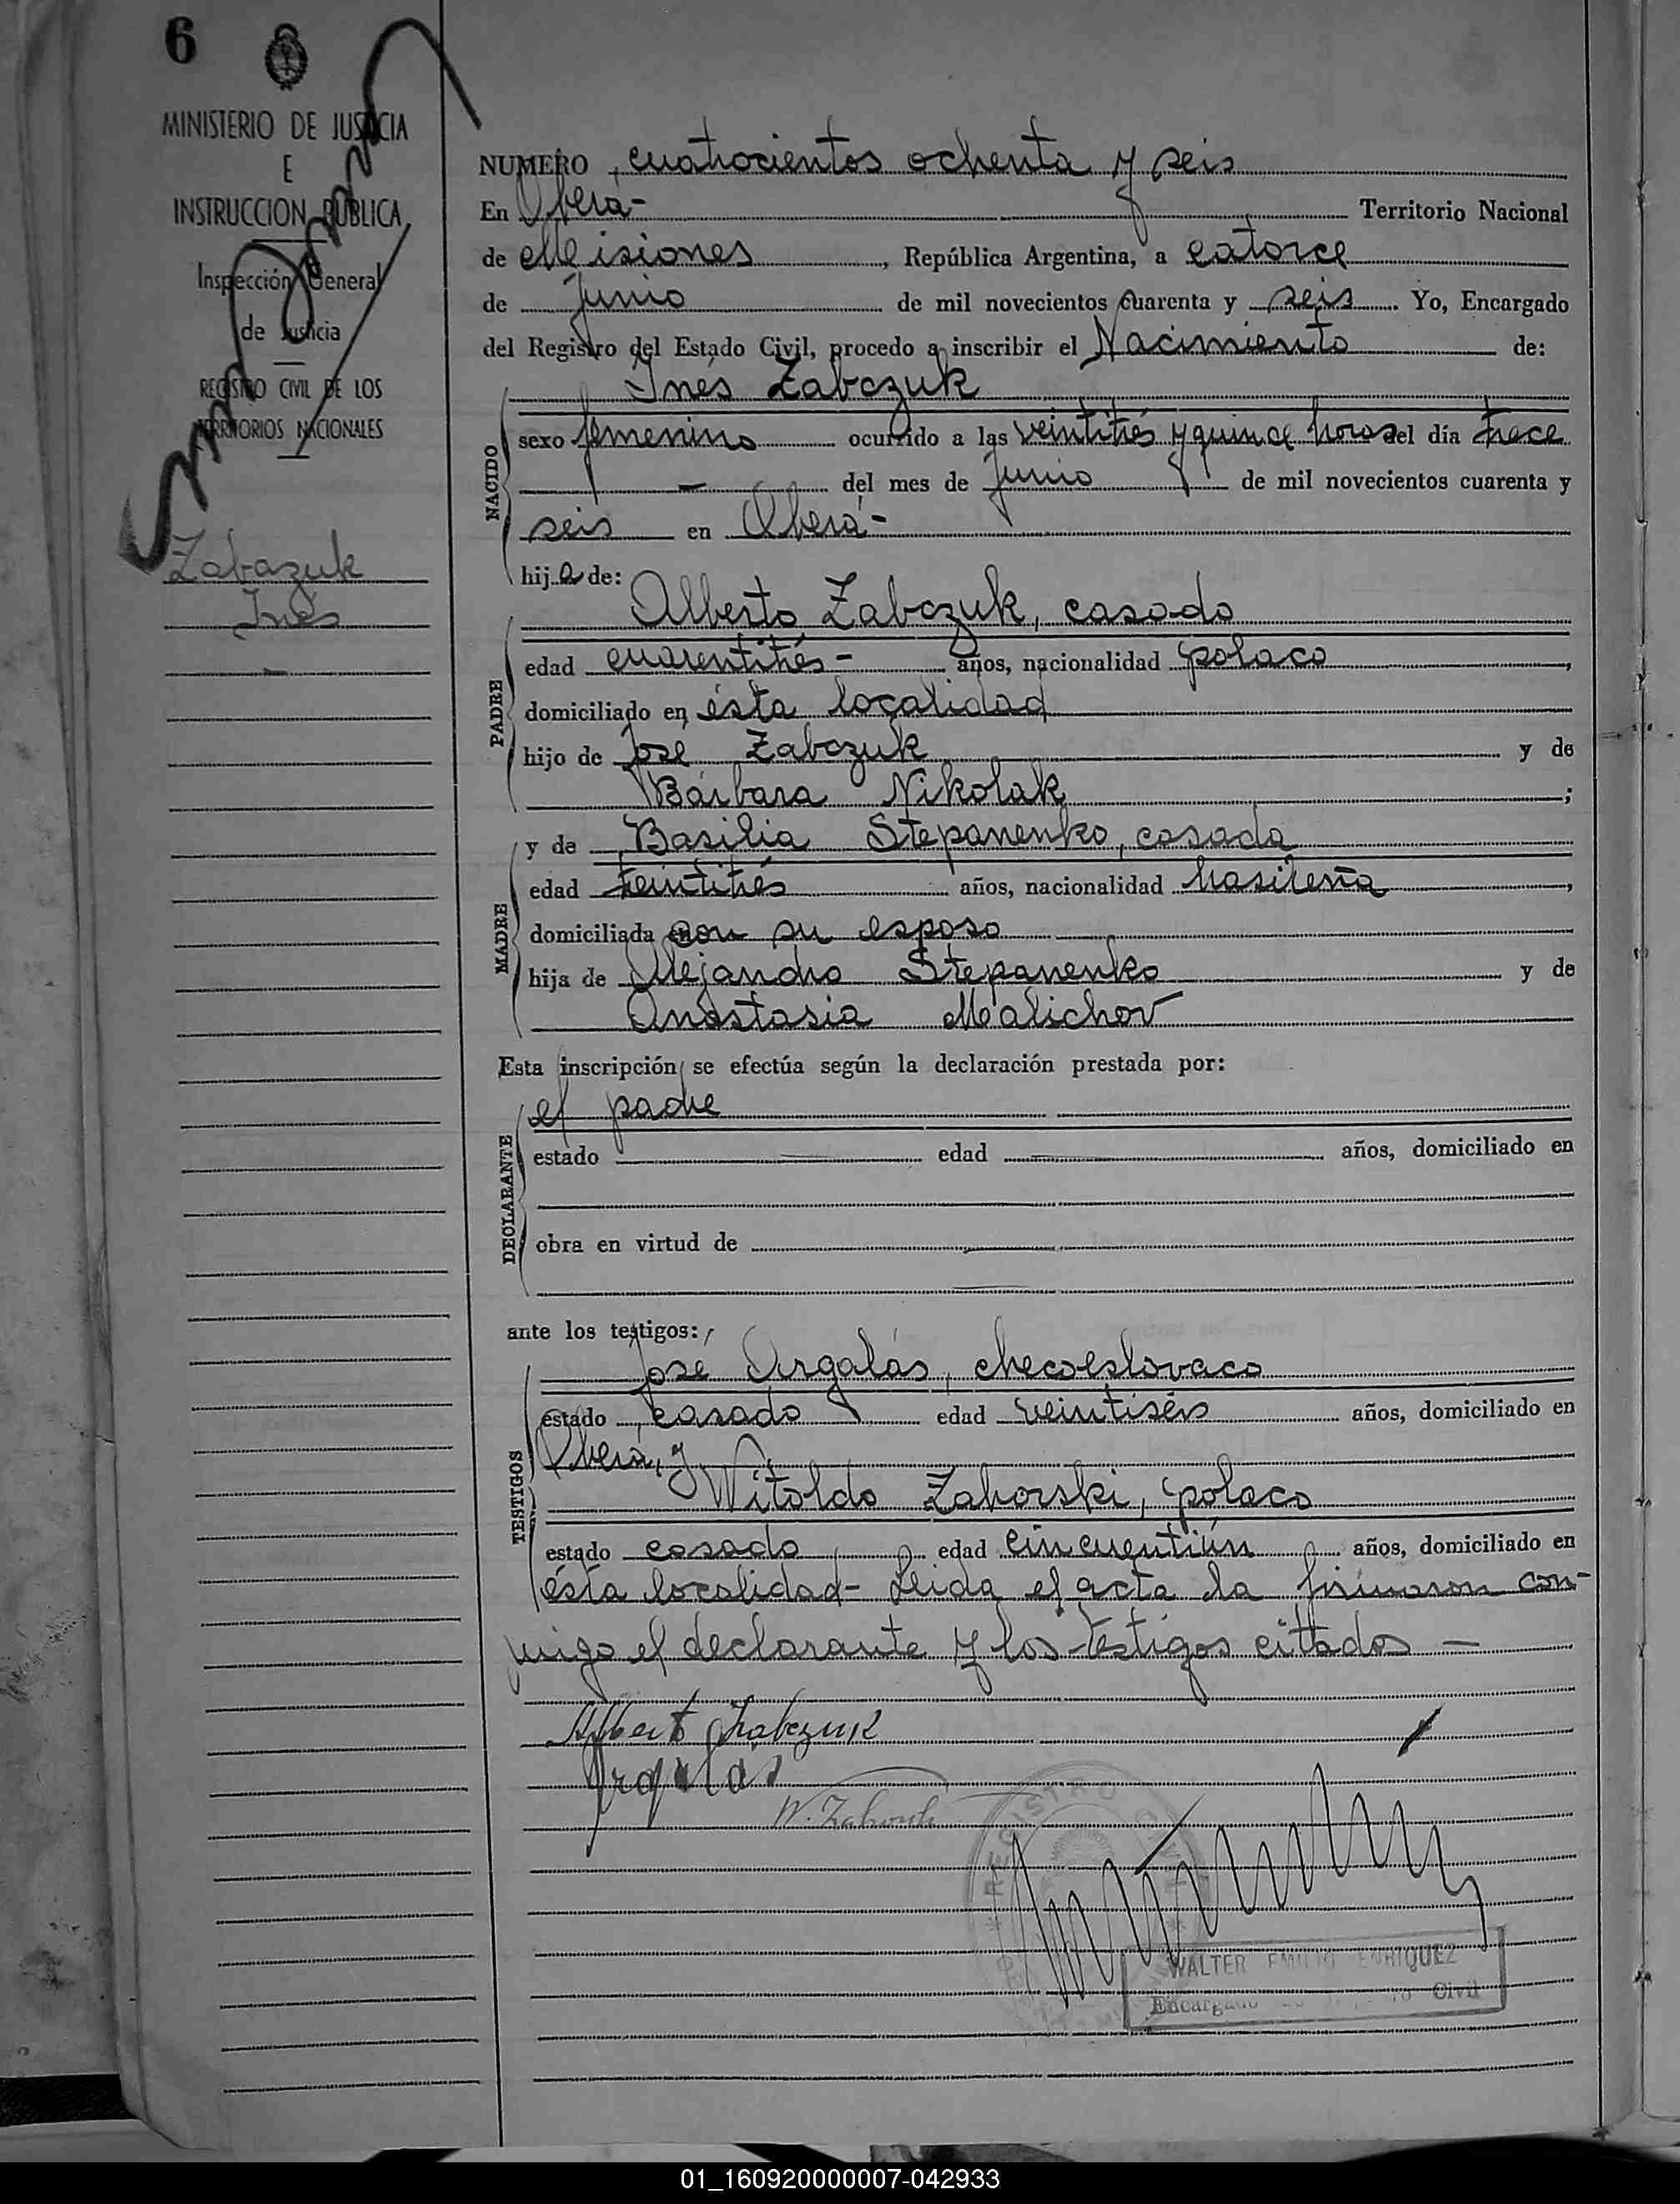 6
MINISTERIO DE JUSTICIA
E
INSTRUCCION PUBLICA
Inspección General
de Justicia
REGISTRO CIVIL DE LOS
TERRITORIOS NACIONALES
Zabazuk
Inés
NUMERO cuatrocientos ochenta y seis
En Oberá- Territorio Nacional
de Misiones, República Argentina, a catorce
de junio de mil novecientos cuarenta y seis. Yo, Encargado
del Registro del Estado Civil, procedo a inscribir el Nacimiento de:
Inés Zabczuk
NACIDO
sexo femenino ocurrido a las veintitrés y quince horas del día trece
- del mes de junio de mil novecientos cuarenta y
seis en Oberá-
hija de:
Alberto Zabczuk, casado
PADRE
edad cuarentitrés- años, nacionalidad polaco,
domiciliado en ésta localidad
hijo de José Zabczuk y de
Bárbara Nikolak;
y de Basilia Stepanenko, casada
MADRE
edad treintitrés años, nacionalidad brasileña,
domiciliada con su esposo
hija de Alejandro Stepanenko y de
Anastasia Malichov
Esta inscripción se efectúa según la declaración prestada por:
el padre
DECLARANTE
estado edad años, domiciliado en
obra en virtud de
ante los testigos:
José Argalás, checoeslovaco
TESTIGOS
estado casado edad veintiséis años, domiciliado en
Oberá, y
Witoldo Zahorski, polaco
estado casado edad cincuentiún años, domiciliado en
ésta localidad- Leida el acta la firmaron con-
migo el declarante y los testigos cittados -
Albert Zabczuk
Argalás
W. Zahorski
REGISTRO
WALTER EMILIO ENRIQUEZ
Encargado Civil
01_160920000007-042933